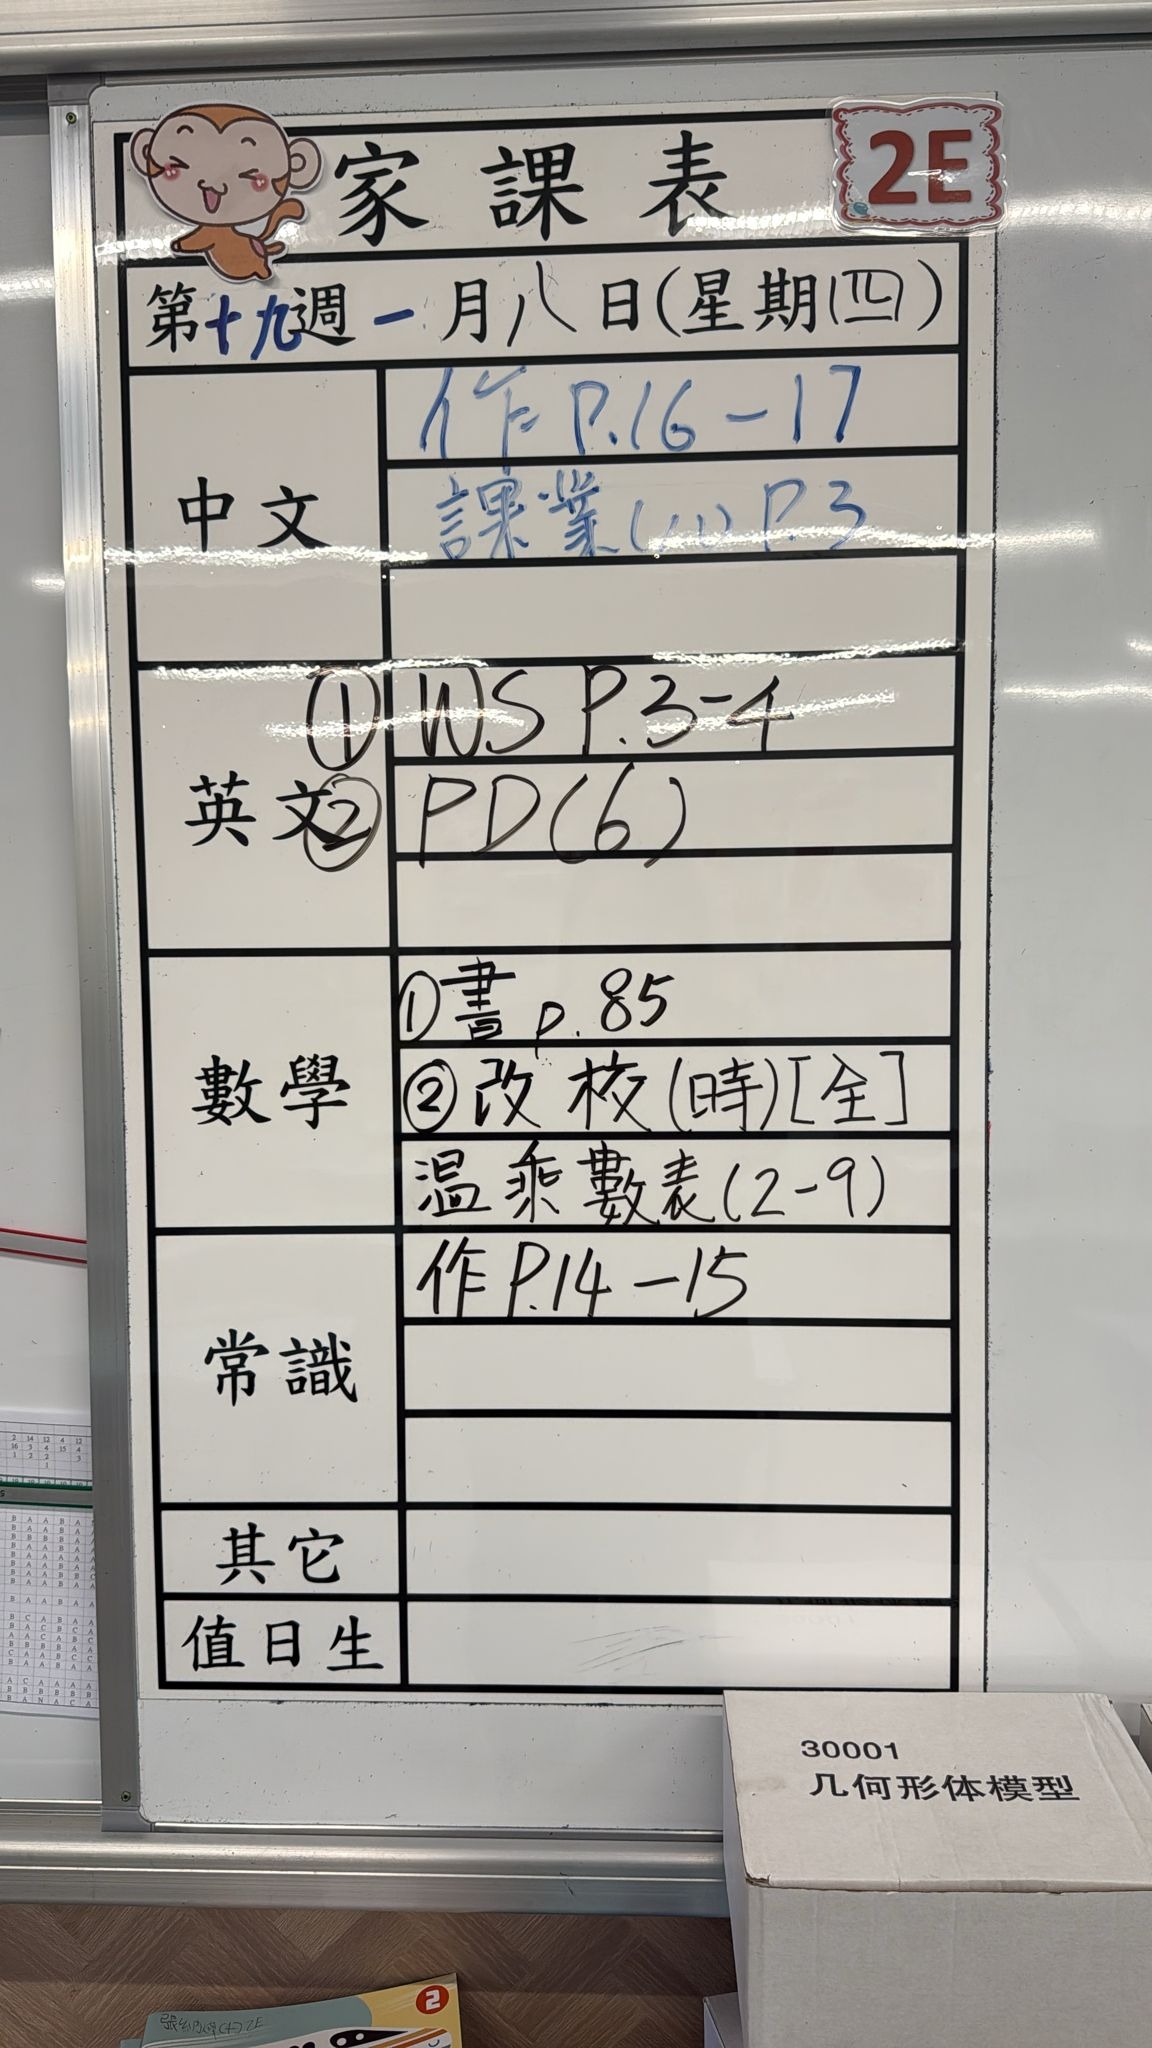 家課表
2E
第十九週一月八日(星期四)
中文
作 P.16-17
課業(八) P.3
英文
① WS P.3-4
② PD(6)
數學
①書 p.85
②改 校(時)[全]
温 乘數表(2-9)
常識
作 P.14-15
其它
值日生
30001
几何形体模型
2
2E